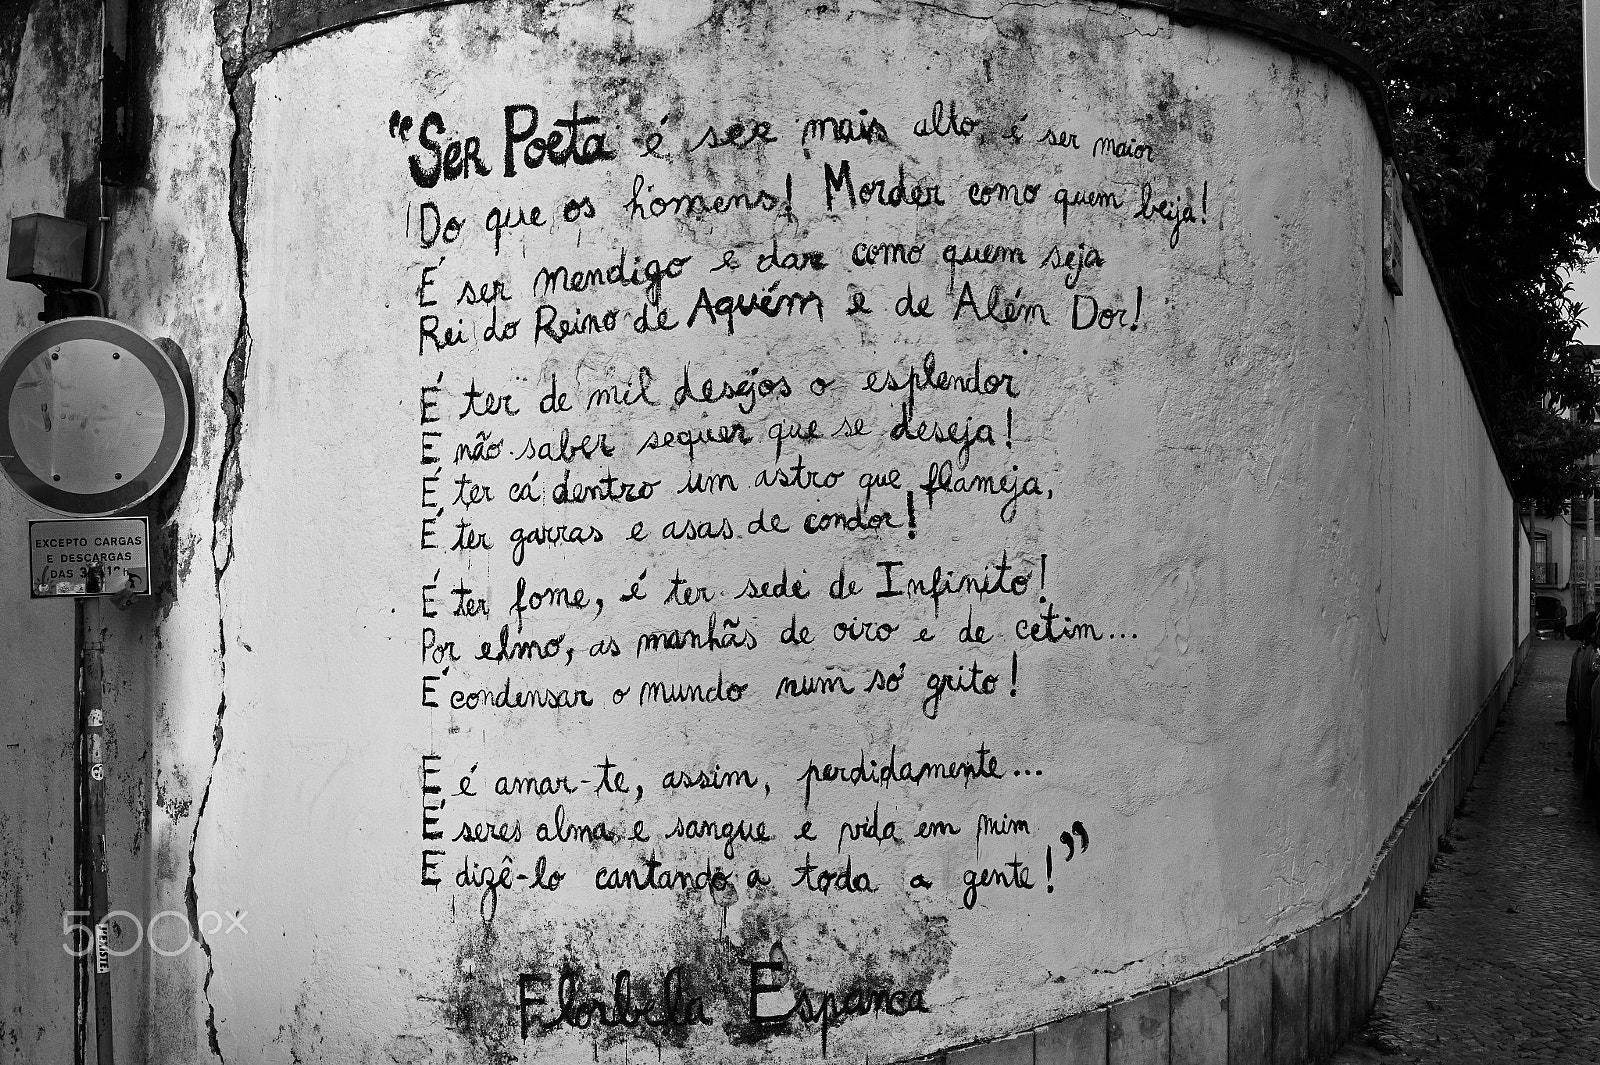 "Ser Poeta é ser mais alto, é ser maior
Do que os homens! Morder como quem beija!
É ser mendigo e dar como quem seja
Rei do Reino de Aquém e de Além Dor!
É ter de mil desejos o esplendor
E não saber sequer que se deseja!
É ter cá dentro um astro que flameja,
É ter garras e asas de condor!
É ter fome, é ter sede de Infinito!
Por elmo, as manhãs de oiro e de cetim...
É condensar o mundo num só grito!
E é amar-te, assim, perdidamente...
É seres alma e sangue e vida em mim
E dizê-lo cantando a toda a gente!"
Florbela Espanca
EXCEPTO CARGAS
E DESCARGAS
DAS
500px